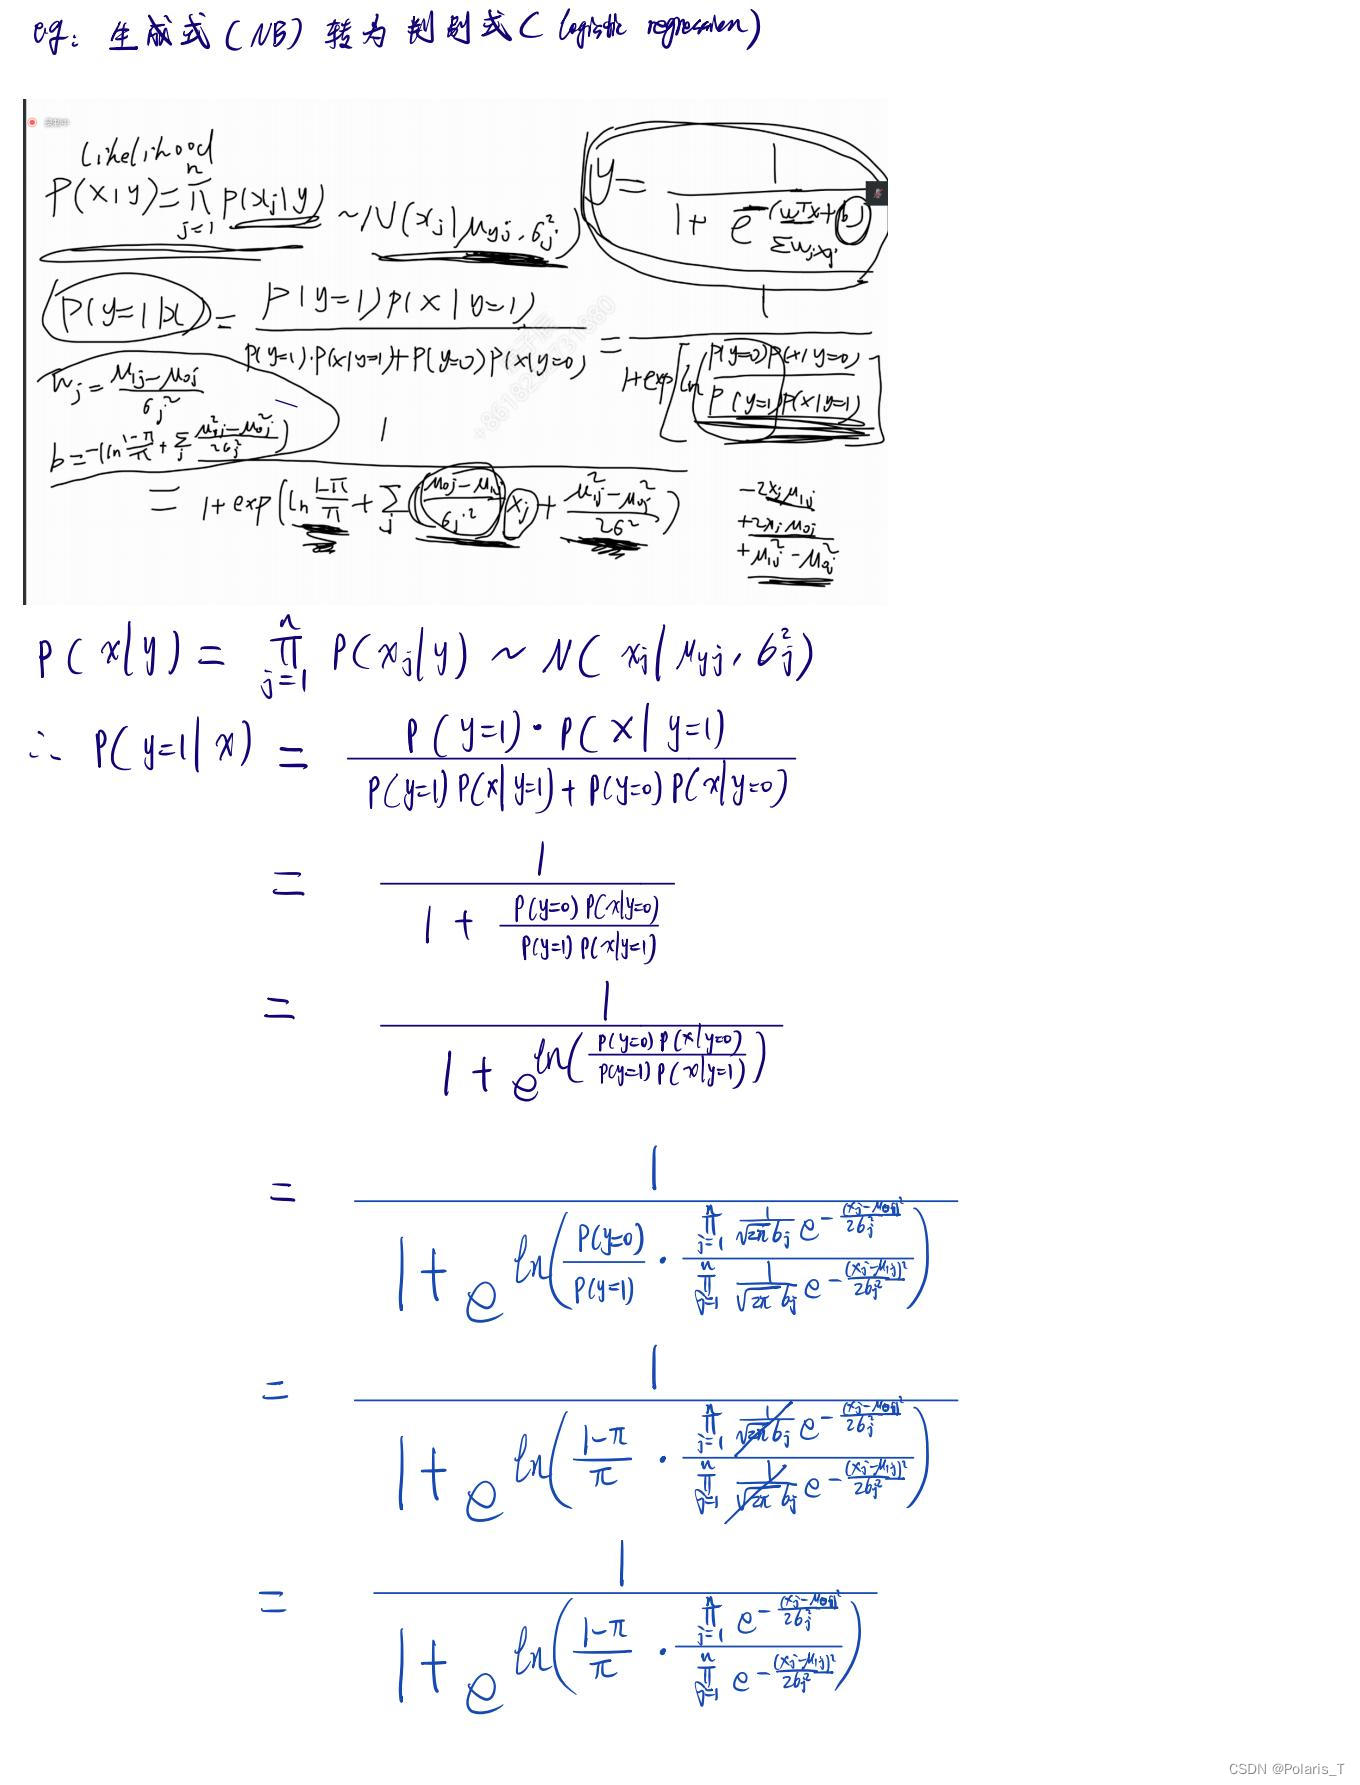 eg: 生成式(NB) 转为 判别式( logistic regression)
录制中
Likelihood
P(x|y)=∏_{j=1}^{n} P(x_j|y) ~N(x_j|μ_{yj}, σ_j^2)
y= 1/(1+e^{-(w^Tx+b)})
Σw_jx_j
P(y=1|x) = P(y=1)P(x|y=1) / (P(y=1)·P(x|y=1)+P(y=0)P(x|y=0)) = 1/(1+exp[ln (P(y=0)P(x|y=0))/(P(y=1)P(x|y=1))])
w_j = (μ_{1j}-μ_{0j})/σ_j^2
b=-(ln (1-π)/π + Σ_j (μ_{1j}^2-μ_{0j}^2)/2σ_j^2)
= 1/(1+exp(ln (1-π)/π + Σ_j ((μ_{0j}-μ_{1j})/σ_j^2 x_j + (μ_{1j}^2-μ_{0j}^2)/2σ^2)))
-2x_jμ_{1j}
+2x_jμ_{0j}
+μ_{1j}^2-μ_{0j}^2
P(x|y) = ∏_{j=1}^{n} P(x_j|y) ~ N(x_j|μ_{yj}, σ_j^2)
∴ P(y=1|x) = P(y=1)·P(x|y=1) / (P(y=1)P(x|y=1)+P(y=0)P(x|y=0))
= 1/(1+ (P(y=0)P(x|y=0))/(P(y=1)P(x|y=1)))
= 1/(1+e^{ln((P(y=0)P(x|y=0))/(P(y=1)P(x|y=1)))})
= 1/(1+e^{ln(P(y=0)/P(y=1) · (∏_{j=1}^{n} 1/(√2π σ_j) e^{-(x_j-μ_{0j})^2/2σ_j^2})/(∏_{j=1}^{n} 1/(√2π σ_j) e^{-(x_j-μ_{1j})^2/2σ_j^2}))})
= 1/(1+e^{ln((1-π)/π · (∏_{j=1}^{n} 1/(√2π σ_j) e^{-(x_j-μ_{0j})^2/2σ_j^2})/(∏_{j=1}^{n} 1/(√2π σ_j) e^{-(x_j-μ_{1j})^2/2σ_j^2}))})
= 1/(1+e^{ln((1-π)/π · (∏_{j=1}^{n} e^{-(x_j-μ_{0j})^2/2σ_j^2})/(∏_{j=1}^{n} e^{-(x_j-μ_{1j})^2/2σ_j^2}))})
CSDN @Polaris_T